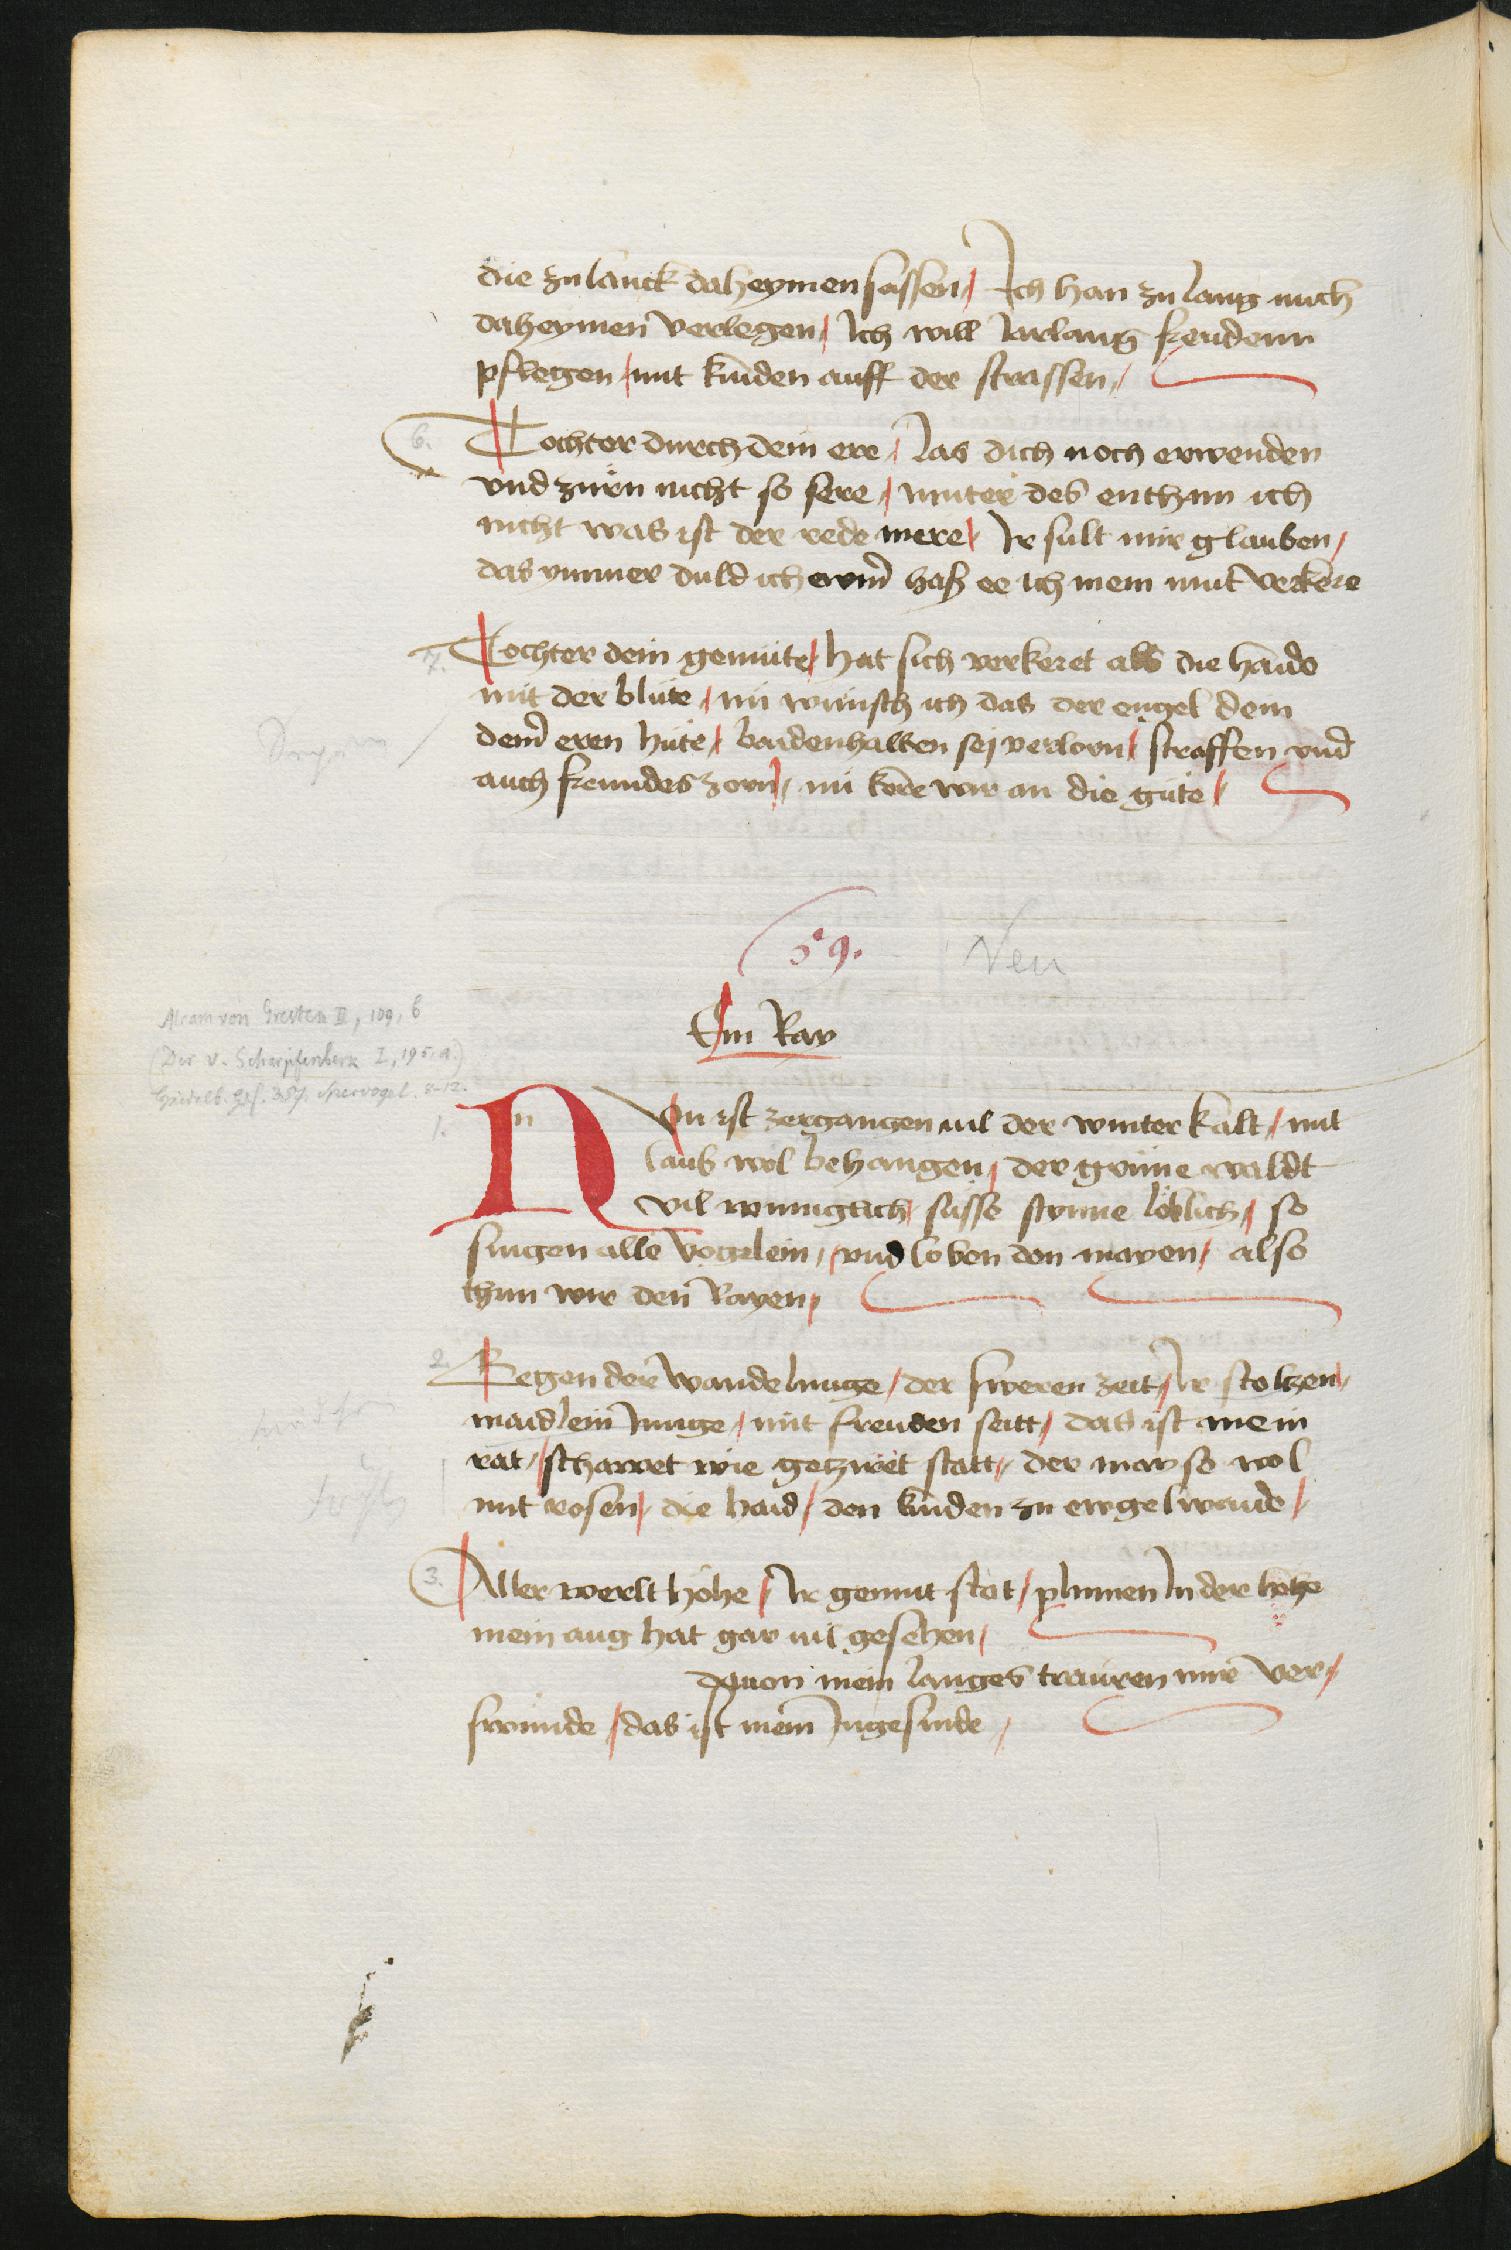 die zu lanck daheymen sassen / Ich han zu lang mich
daheymen verlegen / ich will Jarlang freudenn
pflegen / mit kinden auff der strassen /
6. Tochter durch dein ere / las dich noch erwenden
vnd zurn nicht so sere / muter des enthun ich
nicht was ist der rede mere / Ir sult mir glauben /
das ymmer duld ich ewrn haß ee ich mein mut verkere
7. Tochter dein gemüte / hat sich verkeret als die haide
mit der blüte / nü wünsch ich das der engel dein
deinr eren hüte / baidenhalben sej verlorn / straffen vnd
auch freundes zorn / nü kere wir an die güte /
59. Neu
Ein Ray
Alram von Gresten II, 109, b
(Der v. Scharpfenberk I, 195, a.)
Heidelb. Hs. 357. Spervogel. 8-12.
1. Nun ist zergangen uil der winter kalt / mit
laub wol behangen / der grüne waldt
vil wunigclich / süsse stymme löblich / so
singen alle vogelein / vnd loben den mayen / also
thun wir den Rayen /
2. Gegen der wandelunge / der sweren zeit / Ir stoltzen /
maidlein Junge / mit freuden seitt / das ist mein
rat / schawet wie getziret statt / der may so wol
mit rosen / die haid / den kinden zu ewgelwaide /
3. Aller werlt höhe / Ir gemut stat / plumen In der höhe
mein aug hat gar uil gesehen /
dauon mein langes trauren mir ver /
swinde / das ist mein Ingesinde /